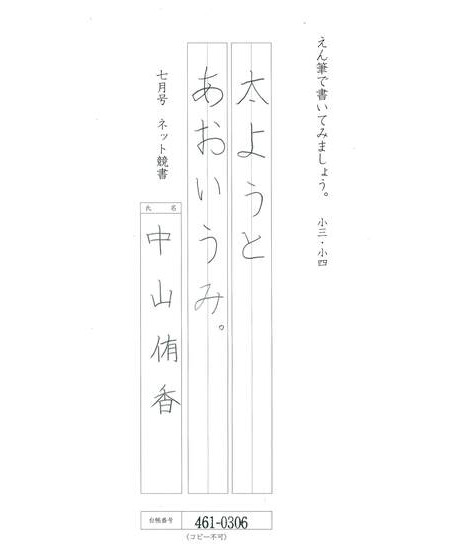 えん筆で書いてみましょう。 小三・小四
太ようと
あおいうみ。
七月号 ネット競書
氏名
中山侑香
台帳番号 461-0306
(コピー不可)